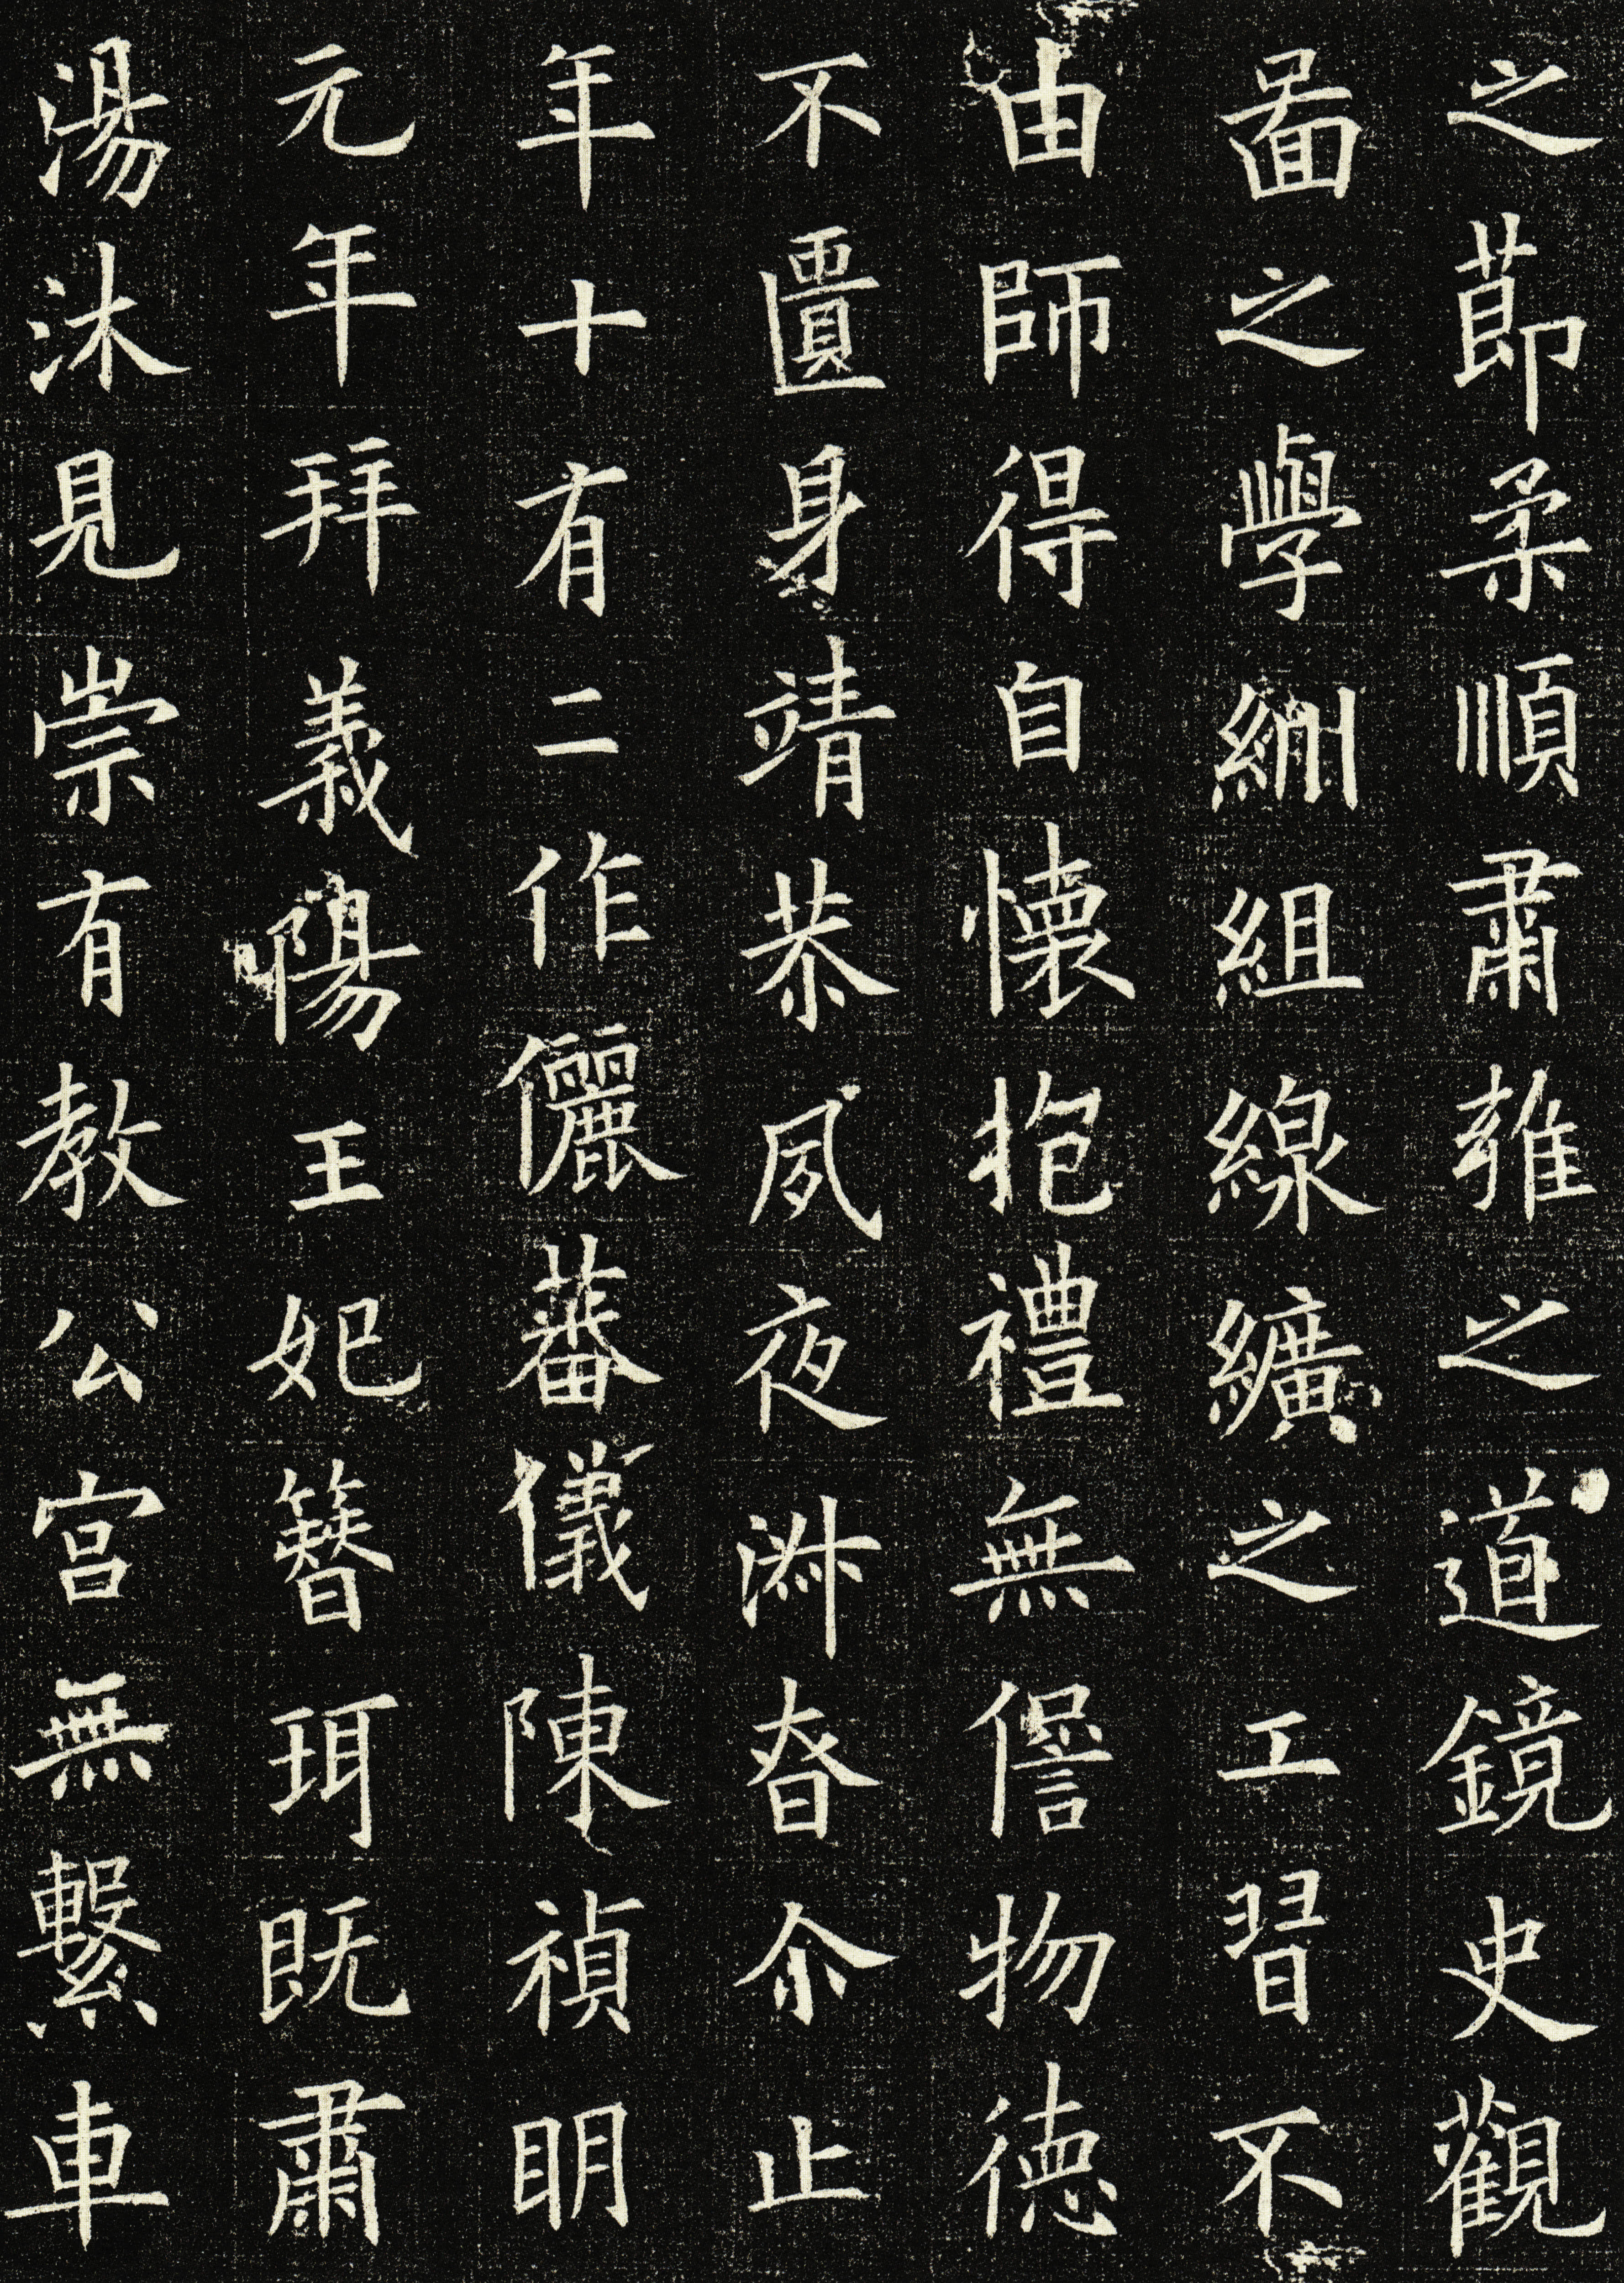 之莭柔順肅雍之道鏡史觀
啚之學紃組線纊之工習不
由師得自懷抱禮無僭物德
不匱身靖恭夙夜淑昚尒止
年十有二作儷蕃儀陳禎眀
元年拜義陽王妃簪珥既肅
湯沐見崇有教公宮無繫車